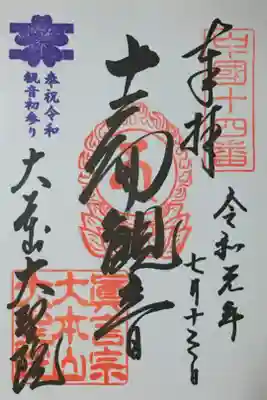 中國十四番
奉拝
令和元年
七月
十一面觀音
大本山大聖院
眞言宗
大本山
奉祝令和
観音初参り